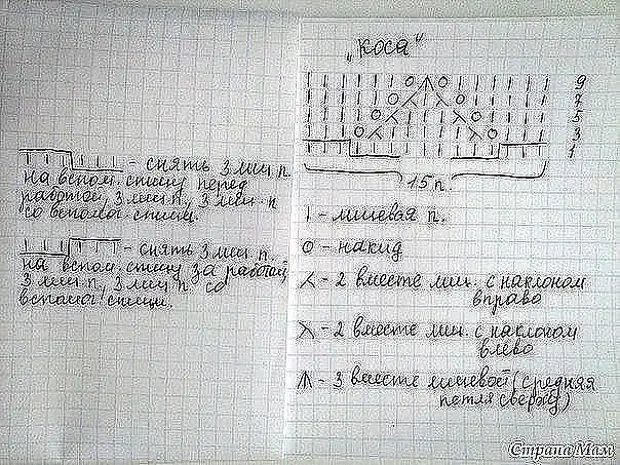 „Коса"
9
7
5
3
1
15 п.
- снять 3 лиц п.
на вспом. спицу перед
работой, 3 лиц п., 3 лиц. п
со вспомог. спицы.
- снять 3 лиц п.
на вспом. спицу за работой
3 лиц п., 3 лиц п со
вспомог. спицы
I - лицевая п.
O - накид
- 2 вместе лиц. с наклоном
вправо
- 2 вместе лиц. с наклоном
влево
- 3 вместе лицевой (средняя
петля сверху)
Страна Мам